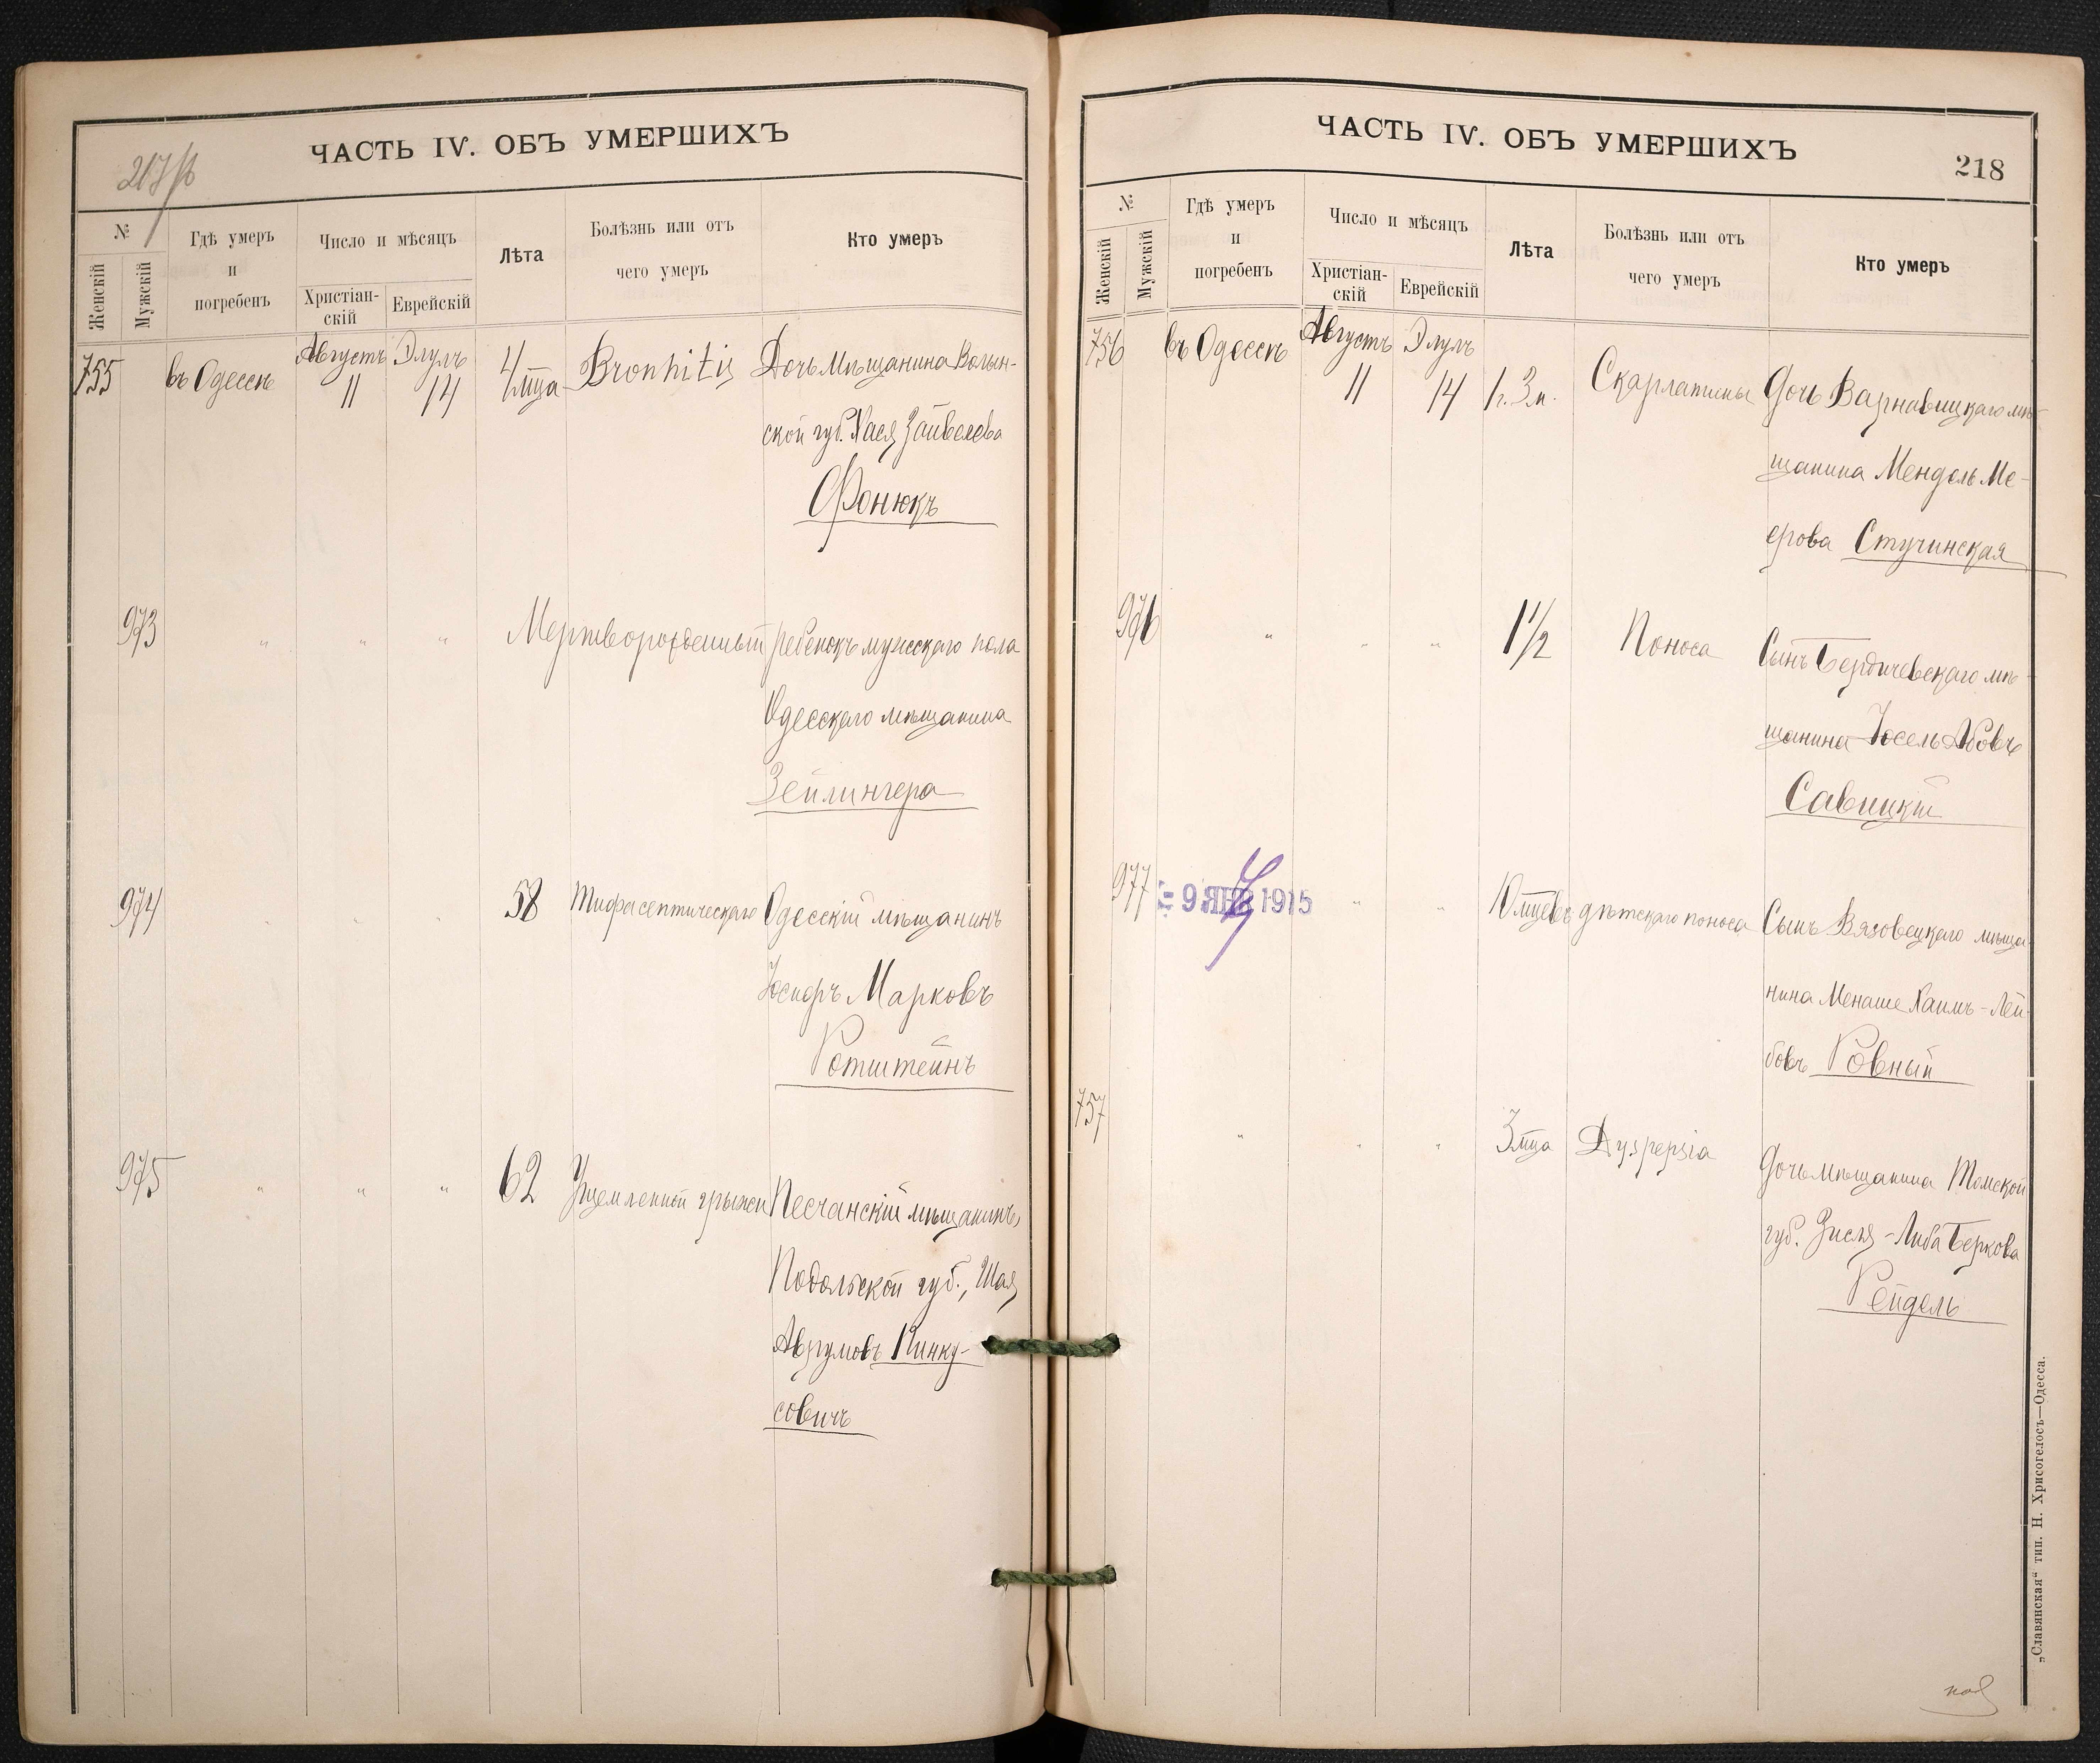 ЧАСТЬ IV. ОБЪ УМЕРШИХЪ
№
Женскій
Мужскій
Гдѣ умеръ
и
погребенъ
Число и мѣсяцъ
Христіан-
скій
Еврейскій
Лѣта
Болѣзнь или отъ
чего умеръ
Кто умеръ
755 въ Одессѣ Августъ Элулъ 4 Bronhitis Дочь мѣщанина Волын-
11 14 мца
ской губ. Хася Зайвелева
Фонюкъ
973 " " " Мертворожденный ребенокъ мужскаго пола
Одесскаго мѣщанина
Зейлингера
974 " " " 58 Тифа септическаго Одесскій мѣщанинъ
Іосифъ Марковъ
Ротштейнъ
975 " " " 62 Ущемленной грыжи Песчанскій мѣщанинъ,
Подольской губ., Шая
Аврумовъ Пинку-
совичъ
ЧАСТЬ IV. ОБЪ УМЕРШИХЪ
218
№
Женскій
Мужскій
Гдѣ умеръ
и
погребенъ
Число и мѣсяцъ
Христіан-
скій
Еврейскій
Лѣта
Болѣзнь или отъ
чего умеръ
Кто умеръ
756 въ Одессѣ Августъ Элулъ
11 14 1 г. 3 м. Скарлатины Дочь Варнавицкаго мѣ-
щанина Мендель Ме-
ерова Стучинская
976 " " " 1 1/2 Поноса Сынъ Бердичевскаго мѣ-
щанина Іосель Абовъ
Савицкій
977 - 9 ЯНВ 1915 " " 10 мцевъ дѣтскаго поноса Сынъ Вязовецкаго мѣща-
нина Менаше Хаимъ-Лей-
бовъ Ровный
757 " " " 3 мца Dyspepsia
Дочь мѣщанина Томской
губ. Зисля-Либа Беркова
Рейдель
„Славянская“ тип. Н. Хрисогелосъ—Одесса.